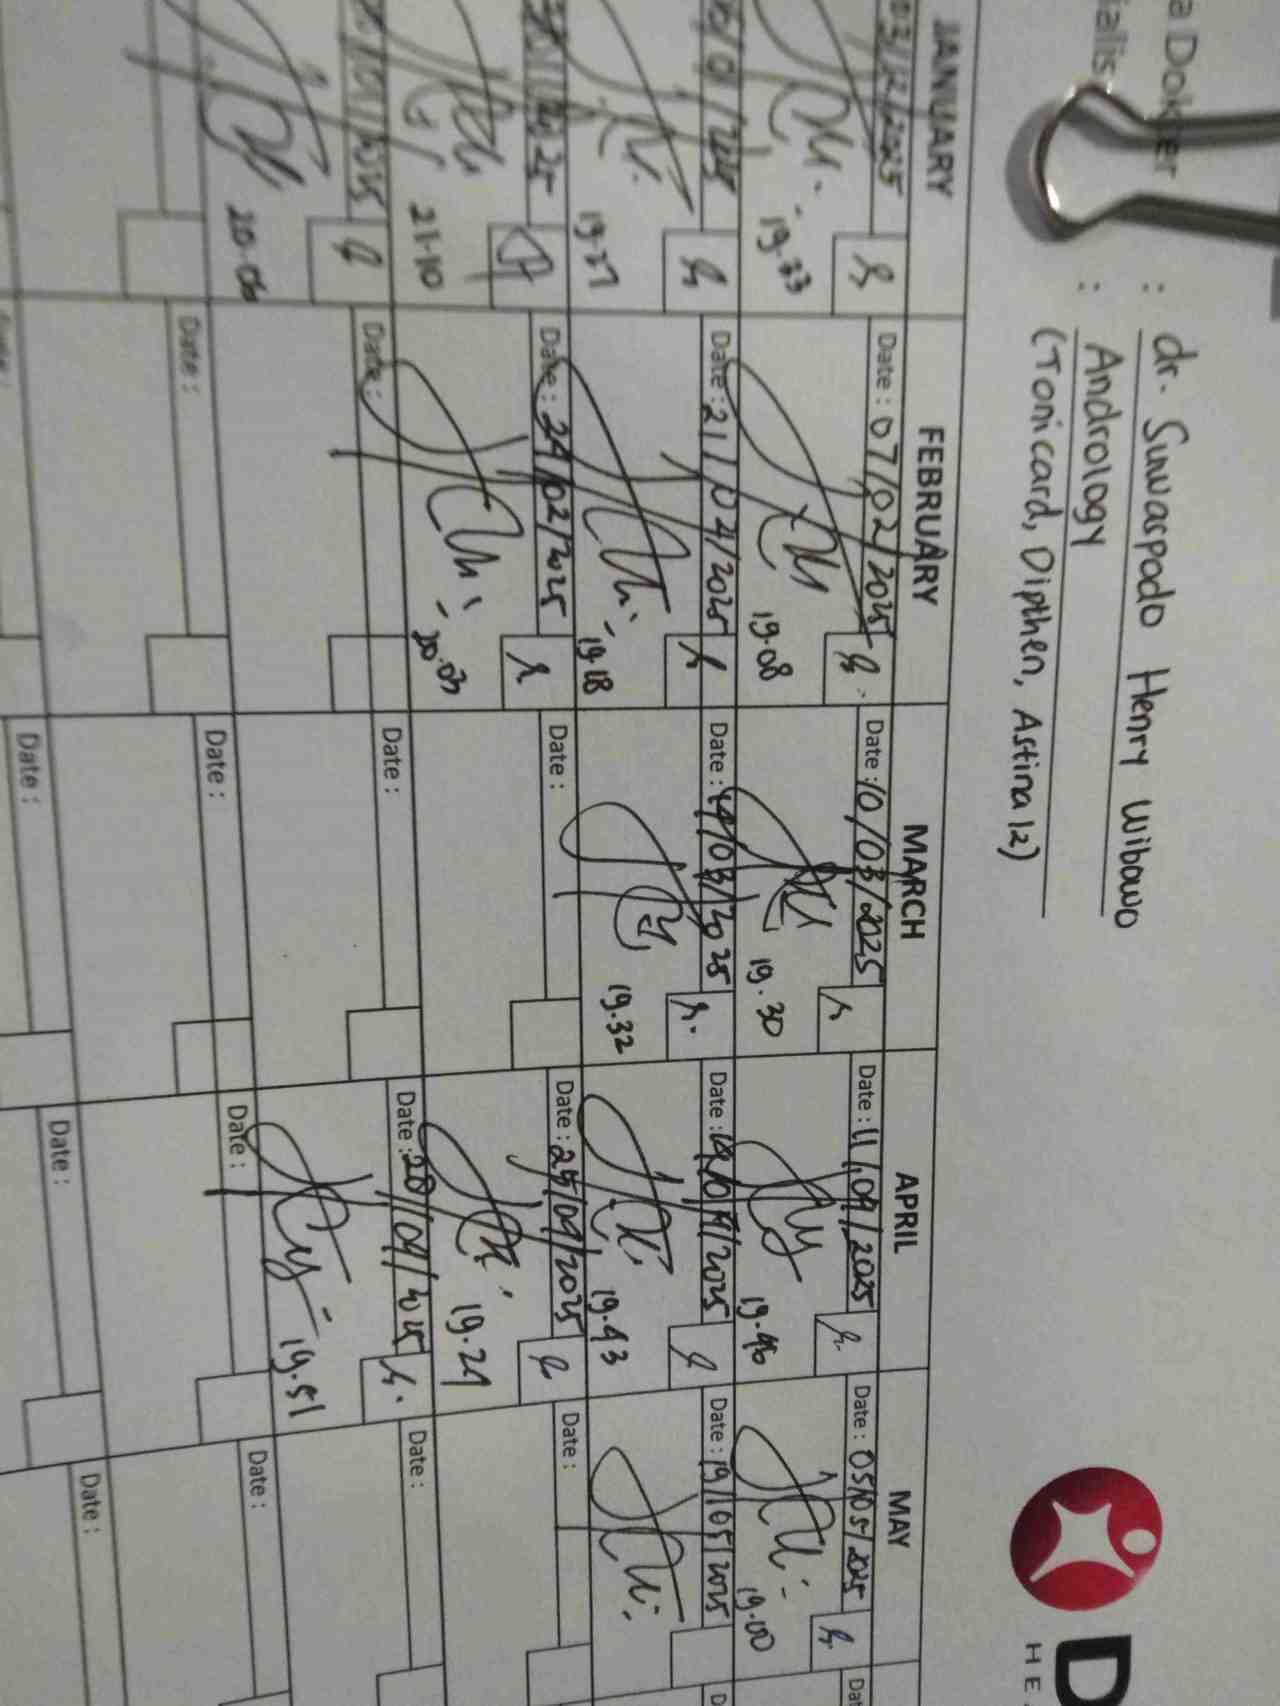 a Dokter : dr. Sunaspodo Henry Wibowo
ialis : Andrology
(Tonicard, Dipthen, Astina 12)
D
HE
JANUARY
FEBRUARY
MARCH
APRIL
MAY
03/12/2025
19.33
Date : 07/02/2025
19.08
Date : 10/03/2025
19.30
Date : 11/04/2025
19.46
Date : 05/05/2025
19.00
19.27
Date : 21/02/2025
19.18
Date : 14/03/2025
19.32
Date : 14/04/2025
19.43
Date : 19/05/2025
21.10
Date : 24/02/2025
20.03
Date :
Date : 25/04/2025
19.24
Date :
20.06
Date :
Date :
Date : 28/04/2025
19.51
Date :
Date :
Date :
Date :
Date :
Date :
Date :
Date :
Date :